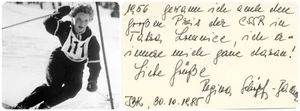 111
1956 gewann ich auch den
großen Preis der CSR in
Tatra, Lomnice, ich er-
innere mich gern daran!
Liebe Grüße
Regina Schöpf-
IBK, 30.10.1985